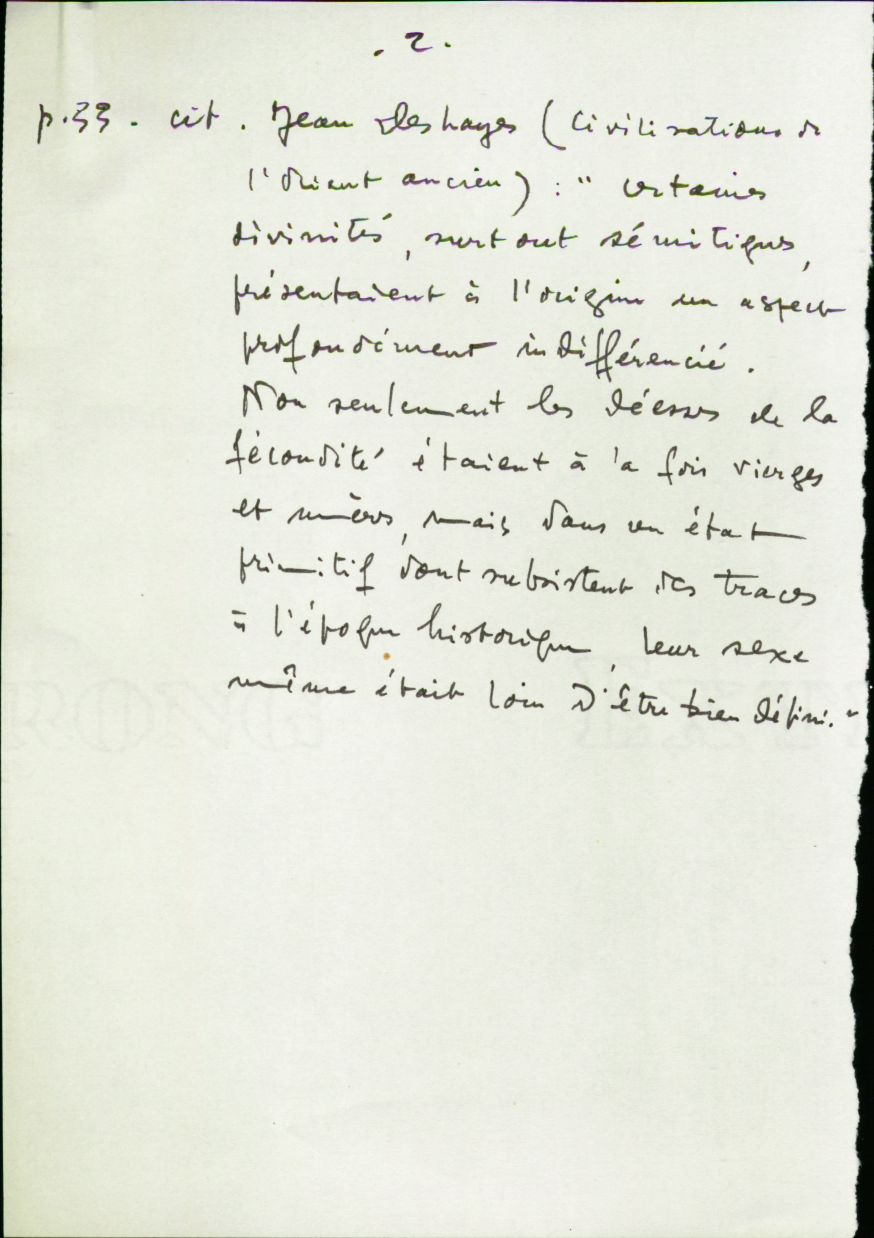 . 2 .
p.33 . cit . Jean Deshayes (Civilisations de
l'Orient ancien) : " certaines
divinités, surtout sémitiques,
présentaient à l'origine un aspect
profondément indifférencié .
Non seulement les déesses de la
fécondité étaient à la fois vierges
et mères, mais dans un état
primitif dont subsistent des traces
à l'époque historique, leur sexe
même était loin d'être bien défini. "